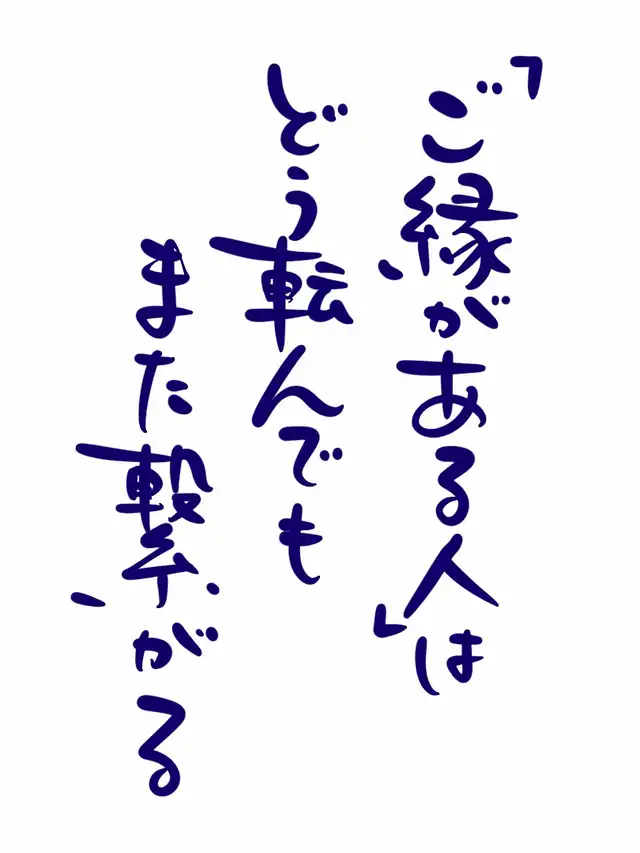 「ご縁がある人」は
どう転んでも
また繋がる